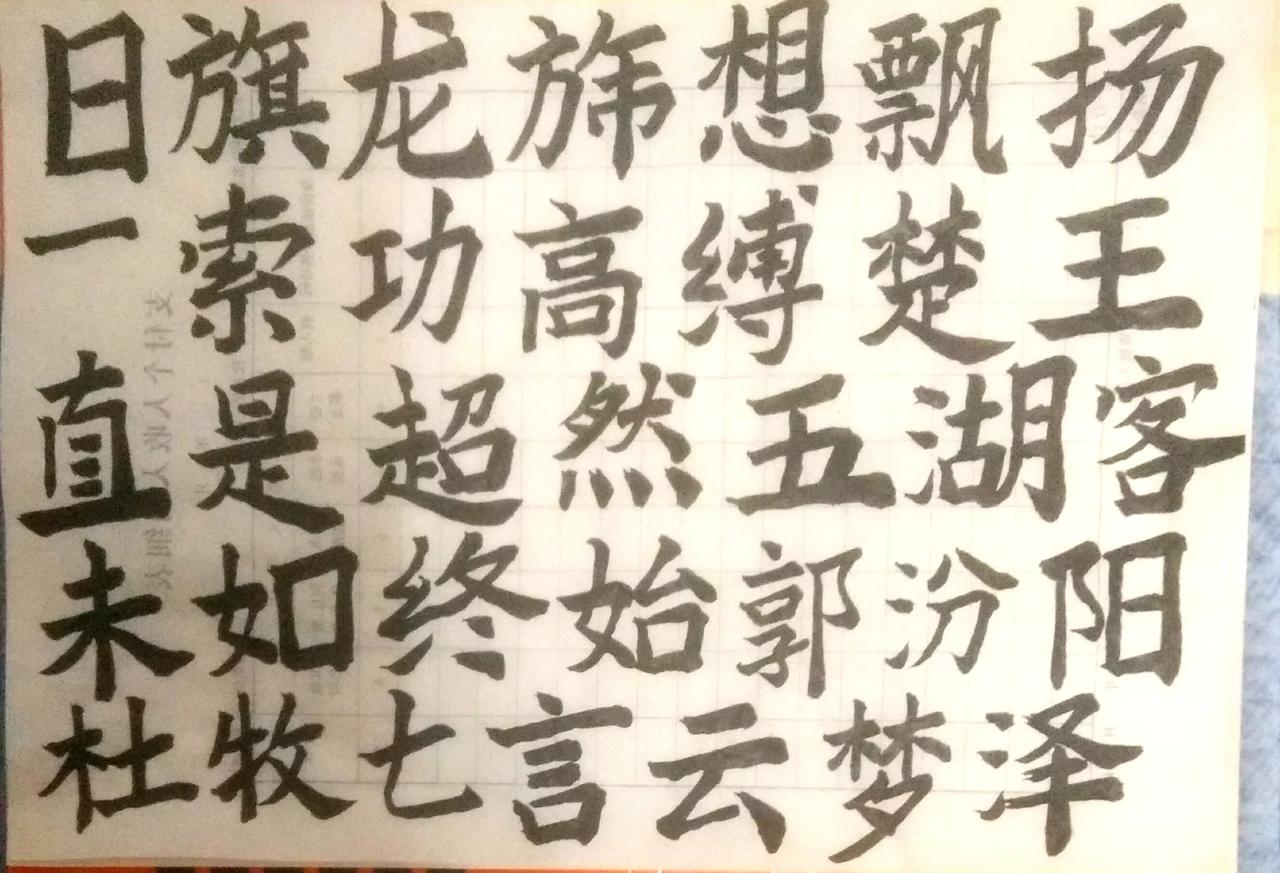 日旗龙旆想飘扬
一索功高缚楚王
直是超然五湖客
未如终始郭汾阳
杜牧七言云梦泽